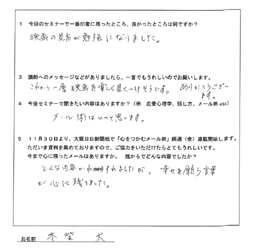 1 今回のセミナーで一番印象に残ったところ、良かったところは何ですか？
映画の見方が勉強になりました。
3 講師へのメッセージなどがありましたら、一言でもうれしいのでお願いします。
これから一層映画を楽しく見ていけそうです。ありがとうございます。
4 今後セミナーで聞きたい内容はありますか？（例 恋愛心理学、話し方、メール術 etc）
メール術はいいと思います。
5 11月30日より、大阪日日新聞で「心をつかむメール術」網道（舎）連載開始します。
ただいま資料を集めておりますので、ご協力をいただけたらとてもうれしいです。
今まで心に残ったメールはありますか。誰からどんな内容でしたか？
どんな内容か忘れましたが、幸せを願う言葉
が心に残りました。
お名前